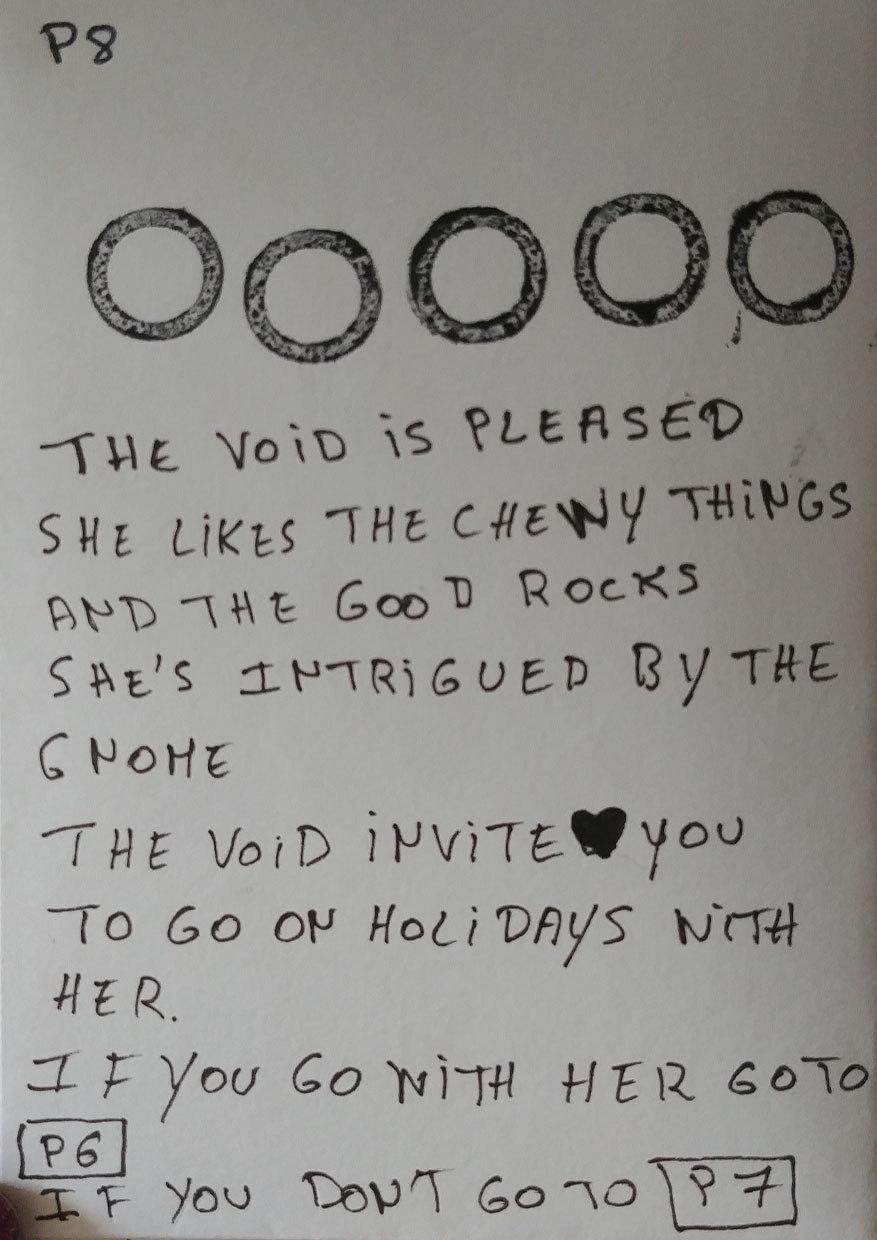 P8
THE VOID IS PLEASED
SHE LIKES THE CHEWY THINGS
AND THE GOOD ROCKS
SHE'S INTRIGUED BY THE
GNOME
THE VOID INVITE♥YOU
TO GO ON HOLIDAYS WITH
HER.
IF YOU GO WITH HER GO TO
P6
IF YOU DON'T GO TO P7